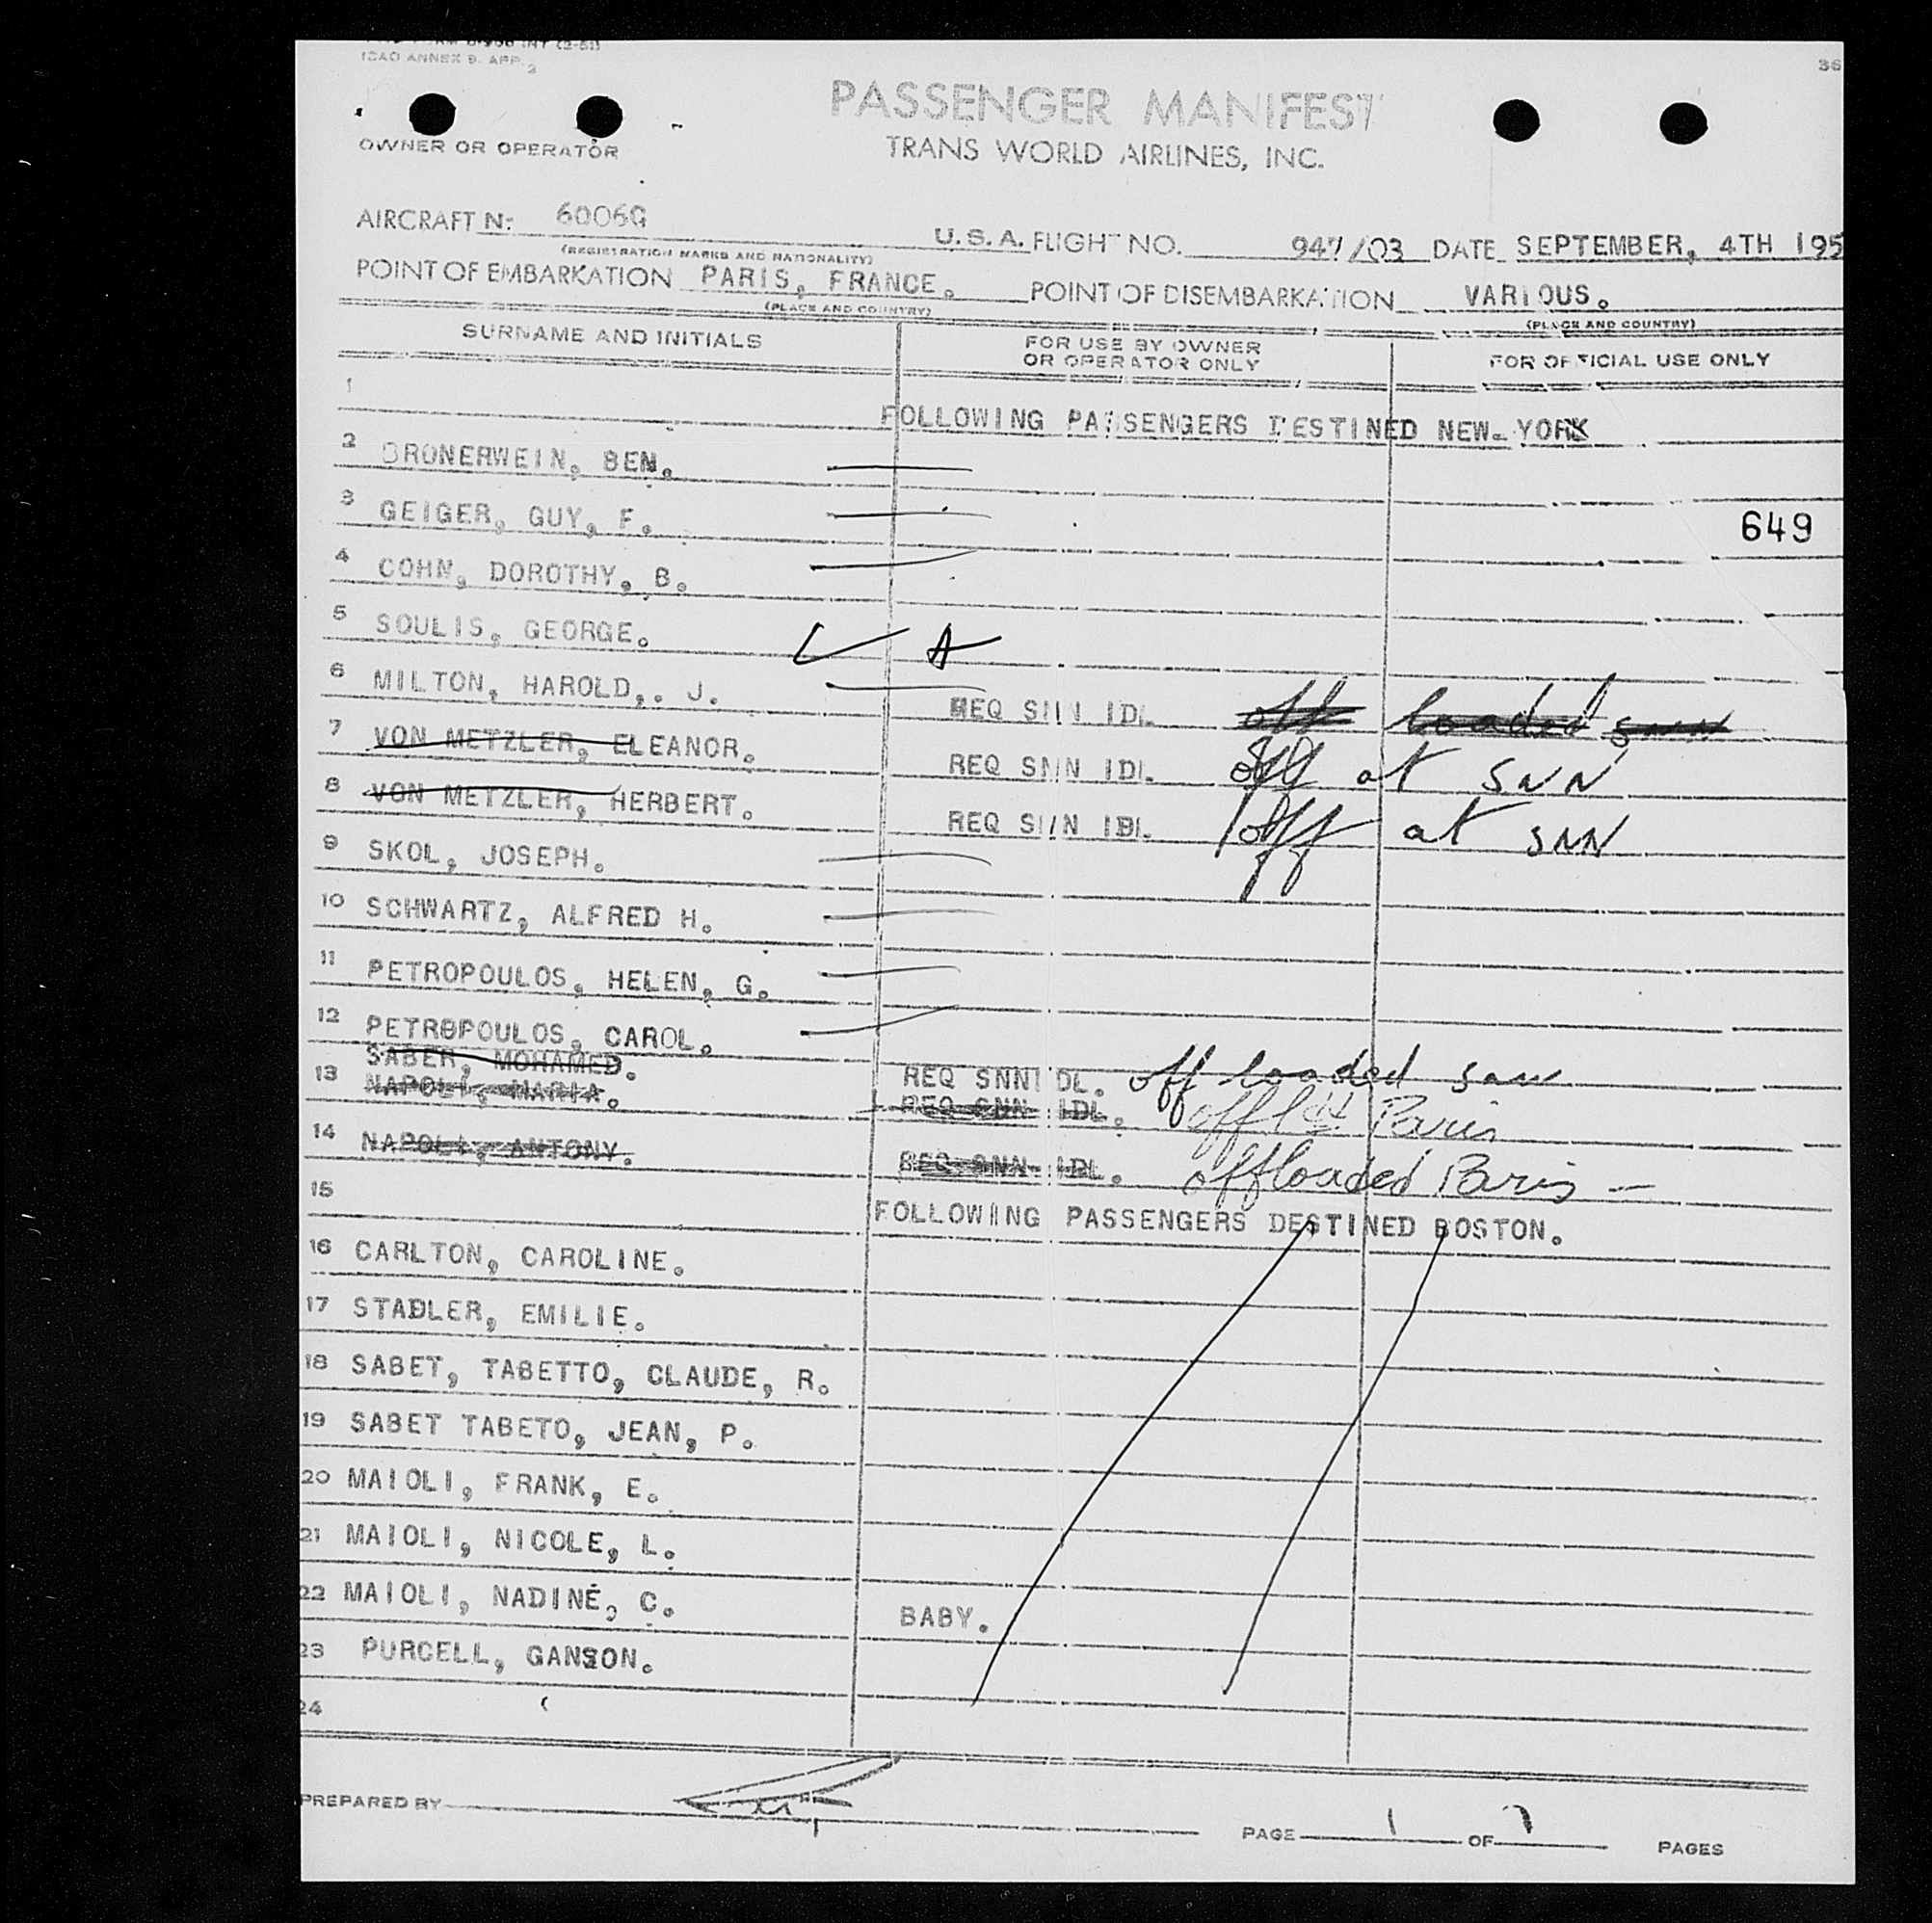 ICAO ANNEX 9. APP. 2
36
PASSENGER MANIFEST
OWNER OR OPERATOR
TRANS WORLD AIRLINES, INC.
AIRCRAFT N: 6006G U.S.A. FLIGHT NO. 947/03 DATE SEPTEMBER, 4TH 195
(REGISTRATION MARKS AND NATIONALITY)
POINT OF EMBARKATION PARIS, FRANCE. POINT OF DISEMBARKATION VARIOUS.
(PLACE AND COUNTRY) (PLACE AND COUNTRY)
SURNAME AND INITIALS FOR USE BY OWNER OR OPERATOR ONLY FOR OFFICIAL USE ONLY
1 FOLLOWING PASSENGERS DESTINED NEW-YORK
2 BRONERWEIN, BEN.
3 GEIGER, GUY, F. 649
4 COHN, DOROTHY, B.
5 SOULIS, GEORGE. A
6 MILTON, HAROLD,. J. REQ SNN IDL off loaded snn
7 VON METZLER, ELEANOR. REQ SNN IDL off at SNN
8 VON METZLER, HERBERT. REQ SNN IDL off at SNN
9 SKOL, JOSEPH.
10 SCHWARTZ, ALFRED H.
11 PETROPOULOS, HELEN, G.
12 PETROPOULOS, CAROL.
SABER, MOHAMED. REQ SNN IDL. off loaded snn
13 NAPOLI, MARIA. REQ SNN IDL. offl'd Paris
14 NAPOLI, ANTONY. REQ SNN IDL. offloaded Paris —
15 FOLLOWING PASSENGERS DESTINED BOSTON.
16 CARLTON, CAROLINE.
17 STADLER, EMILIE.
18 SABET, TABETTO, CLAUDE, R.
19 SABET TABETO, JEAN, P.
20 MAIOLI, FRANK, E.
21 MAIOLI, NICOLE, L.
22 MAIOLI, NADINE, C. BABY.
23 PURCELL, GANSON.
24
PREPARED BY
PAGE 1 OF 7 PAGES